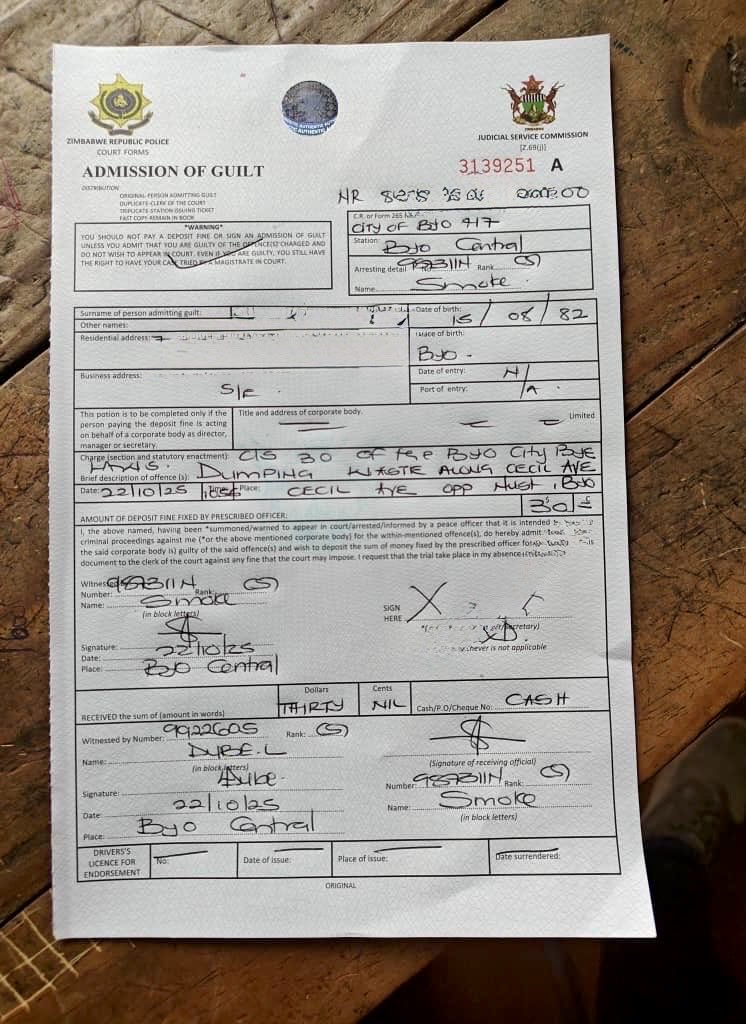 ZIMBABWE REPUBLIC POLICE
COURT FORMS
ADMISSION OF GUILT
DISTRIBUTION
ORIGINAL-PERSON ADMITTING GUILT
DUPLICATE-CLERK OF THE COURT
TRIPLICATE-STATION ISSUING TICKET
FAST COPY-REMAIN IN BOOK
ZIMBABWE
JUDICIAL SERVICE COMMISSION
[Z.69(j)]
3139251 A
*WARNING*
YOU SHOULD NOT PAY A DEPOSIT FINE OR SIGN AN ADMISSION OF GUILT
UNLESS YOU ADMIT THAT YOU ARE GUILTY OF THE OFFENCE(S) CHARGED AND
DO NOT WISH TO APPEAR IN COURT. EVEN IF YOU ARE GUILTY, YOU STILL HAVE
THE RIGHT TO HAVE YOUR CASE TRIED BY A MAGISTRATE IN COURT.
C.R. or Form 265
City OF BYO 417
Station: Byo Central
Arresting detail Rank (S)
Name: Smoke
Surname of person admitting guilt:
Date of birth: 15/08/82
Other names:
Residential address:
Place of birth:
BYO.
Business address: S/E
Date of entry: N/
Port of entry: A.
This potion is to be completed only if the
person paying the deposit fine is acting
on behalf of a corporate body as director,
manager or secretary.
Title and address of corporate body.
Limited
Charge (section and statutory enactment): C/S 30 OF BYO City Bye
LAWS.
Brief description of offence (s): DUMPING WASTE ALONG CECIL AVE
Date: 22/10/25 Time: Place: CECIL AVE OPP , BYO
AMOUNT OF DEPOSIT FINE FIXED BY PRESCRIBED OFFICER: 30
I, the above named, having been *summoned/warned to appear in court/arrested/informed by a peace officer that it is intended
criminal proceedings against me (*or the above mentioned corporate body) for the within-mentioned offence(s), do hereby admit
the said corporate body is) guilty of the said offence(s) and wish to deposit the sum of money fixed by the prescribed officer for
document to the clerk of the court against any fine that the court may impose. I request that the trial take place in my absence
Witnessed
Number: Rank: (S)
Name: Smoke
(in block letters)
Signature:
Date: 22/10/25
Place: Byo Central
SIGN
HERE X
is not applicable
Dollars
Cents
RECEIVED the sum of (amount in words) THIRTY NIL
Cash/P.O/Cheque No: CASH
Witnessed by Number: 9922605 Rank: (S)
Name: DUBE.L
(in block letters)
Signature: Dube.
Date: 22/10/25
Place: Byo Central
(Signature of receiving official)
Number: Rank: (S)
Name: Smoke
(in block letters)
DRIVERS'S
LICENCE FOR
ENDORSEMENT
No:
Date of issue:
Place of issue:
Date surrendered:
ORIGINAL